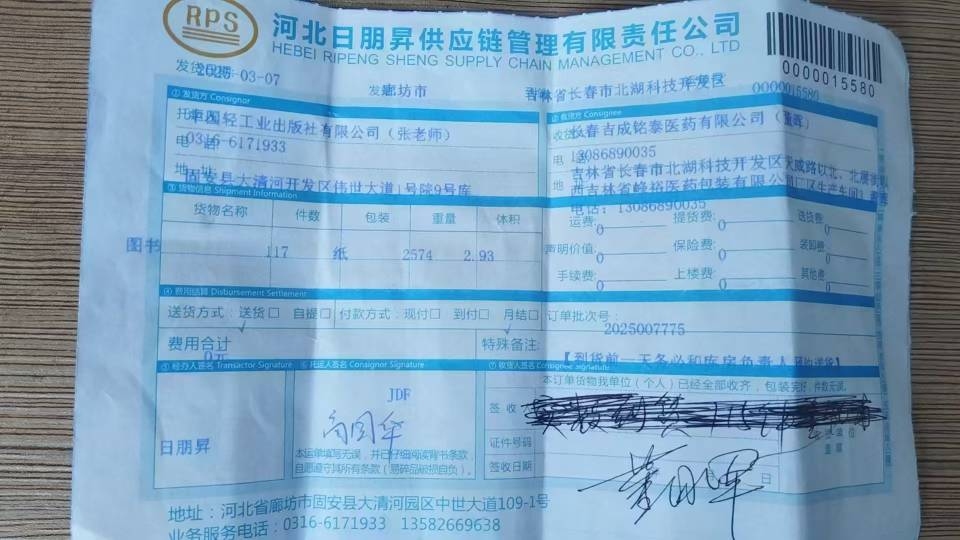 RPS
河北日朋昇供应链管理有限责任公司
HEBEI RIPENG SHENG SUPPLY CHAIN MANAGEMENT CO., LTD
0000015580
2025-03-07
廊坊市
吉林省长春市北湖科技开发区
0000015580
① 发货方 Consignor
② 收货方 Consignee
轻工业出版社有限公司（张老师）
长春吉成铭泰医药有限公司
电 话
0316-6171933
13086890035
地 址
固安县大清河开发区伟世大道1号院9号库
吉林省长春市北湖科技开发区
吉林省峰裕医药包装有限公司厂区生产车间
电话：13086890035
③ 货物信息 Shipment Information
货物名称 件数 包装 重量 体积
图书 117 纸 2574 2.93
运费: 0 提货费: 0 送货费: 0
声明价值: 0 保险费: 0 装卸费: 0
手续费: 0 上楼费: 0 其他费: 0
④ 费用结算 Disbursement Settlement
送货方式：送货□ 自提□ 付款方式：现付□ 到付□ 月结□
订单批次号：
2025007775
费用合计
0元
特殊备注：
【到货前一天务必和库房负责人预约送货】
⑤ 经办人签名 Transactor Signature
⑥ 托运人签名 Consignor Signature
⑦ 收货人签名 Consignee Signature
本订单货物我单位（个人）已经全部收齐，包装完好 件数无误。
JDF
签 收
高国华
日朋昇
证件号码
本运单填写无误，并已仔细阅读背书条款
自愿遵守其所有条款（易碎品破损自负）。
签收日期
日
地址：河北省廊坊市固安县大清河园区中世大道109-1号
业务服务电话：0316-6171933 13582669638